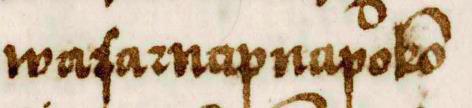 waſarnapnapokō